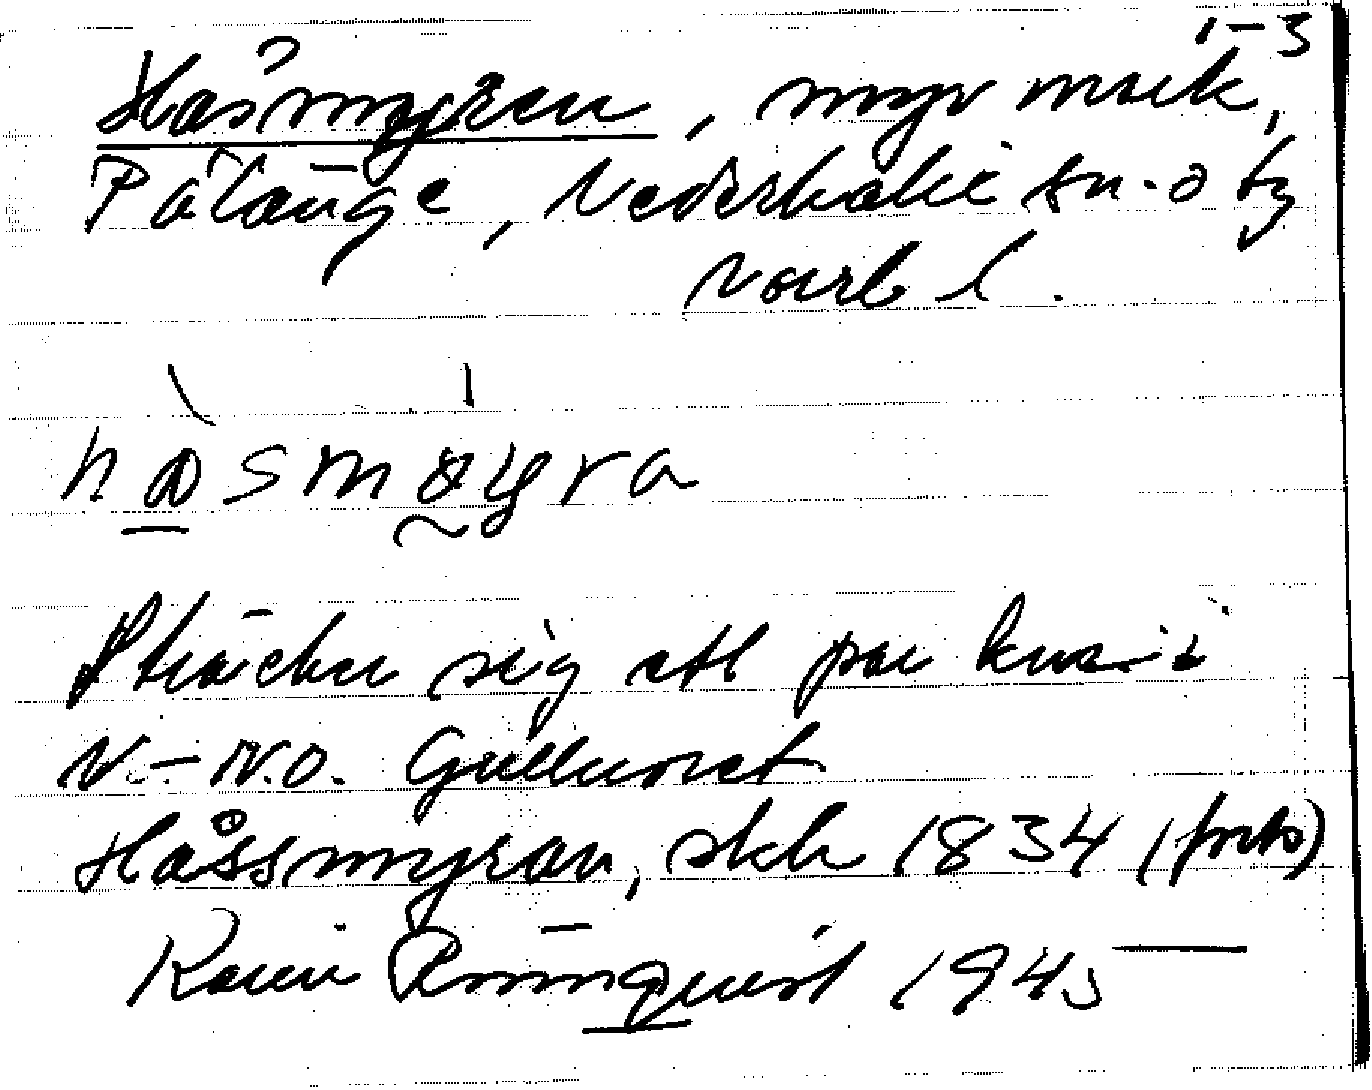 1-3
Håsmyren, myrmark,
Pålänge, Nederkalix sn. o tg
Norrb l.
håsmøyra
sträcker sig ett par km i
N.-N.O. Gullur
Håssmyran, skh 1834 (
Karin Rönnquist 1945